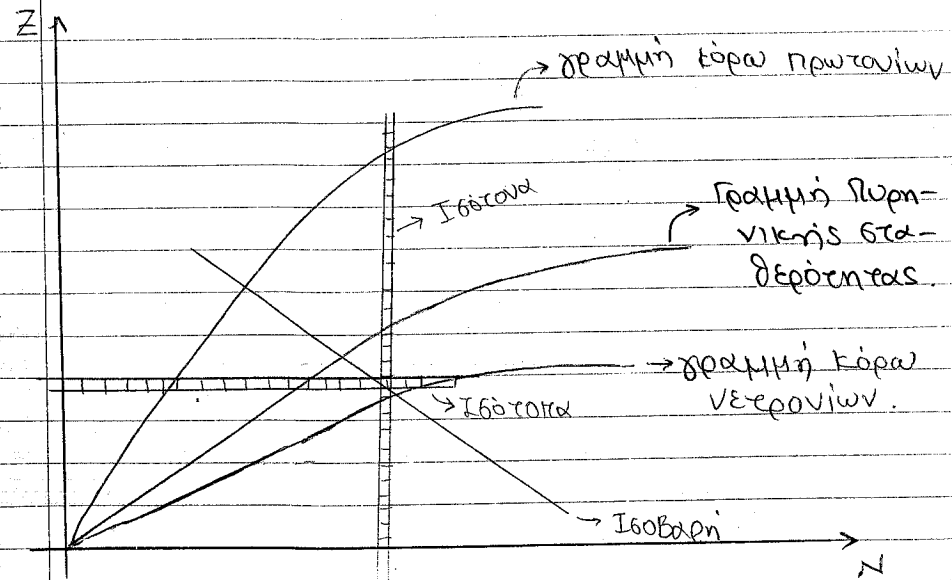 Z
γραμμή κόρου πρωτονίων
Ισότονα
Γραμμή Πυρη-
νικής στα-
θερότητας.
γραμμή κόρου
νετρονίων.
Ισότοπα
Ισοβαρή
N